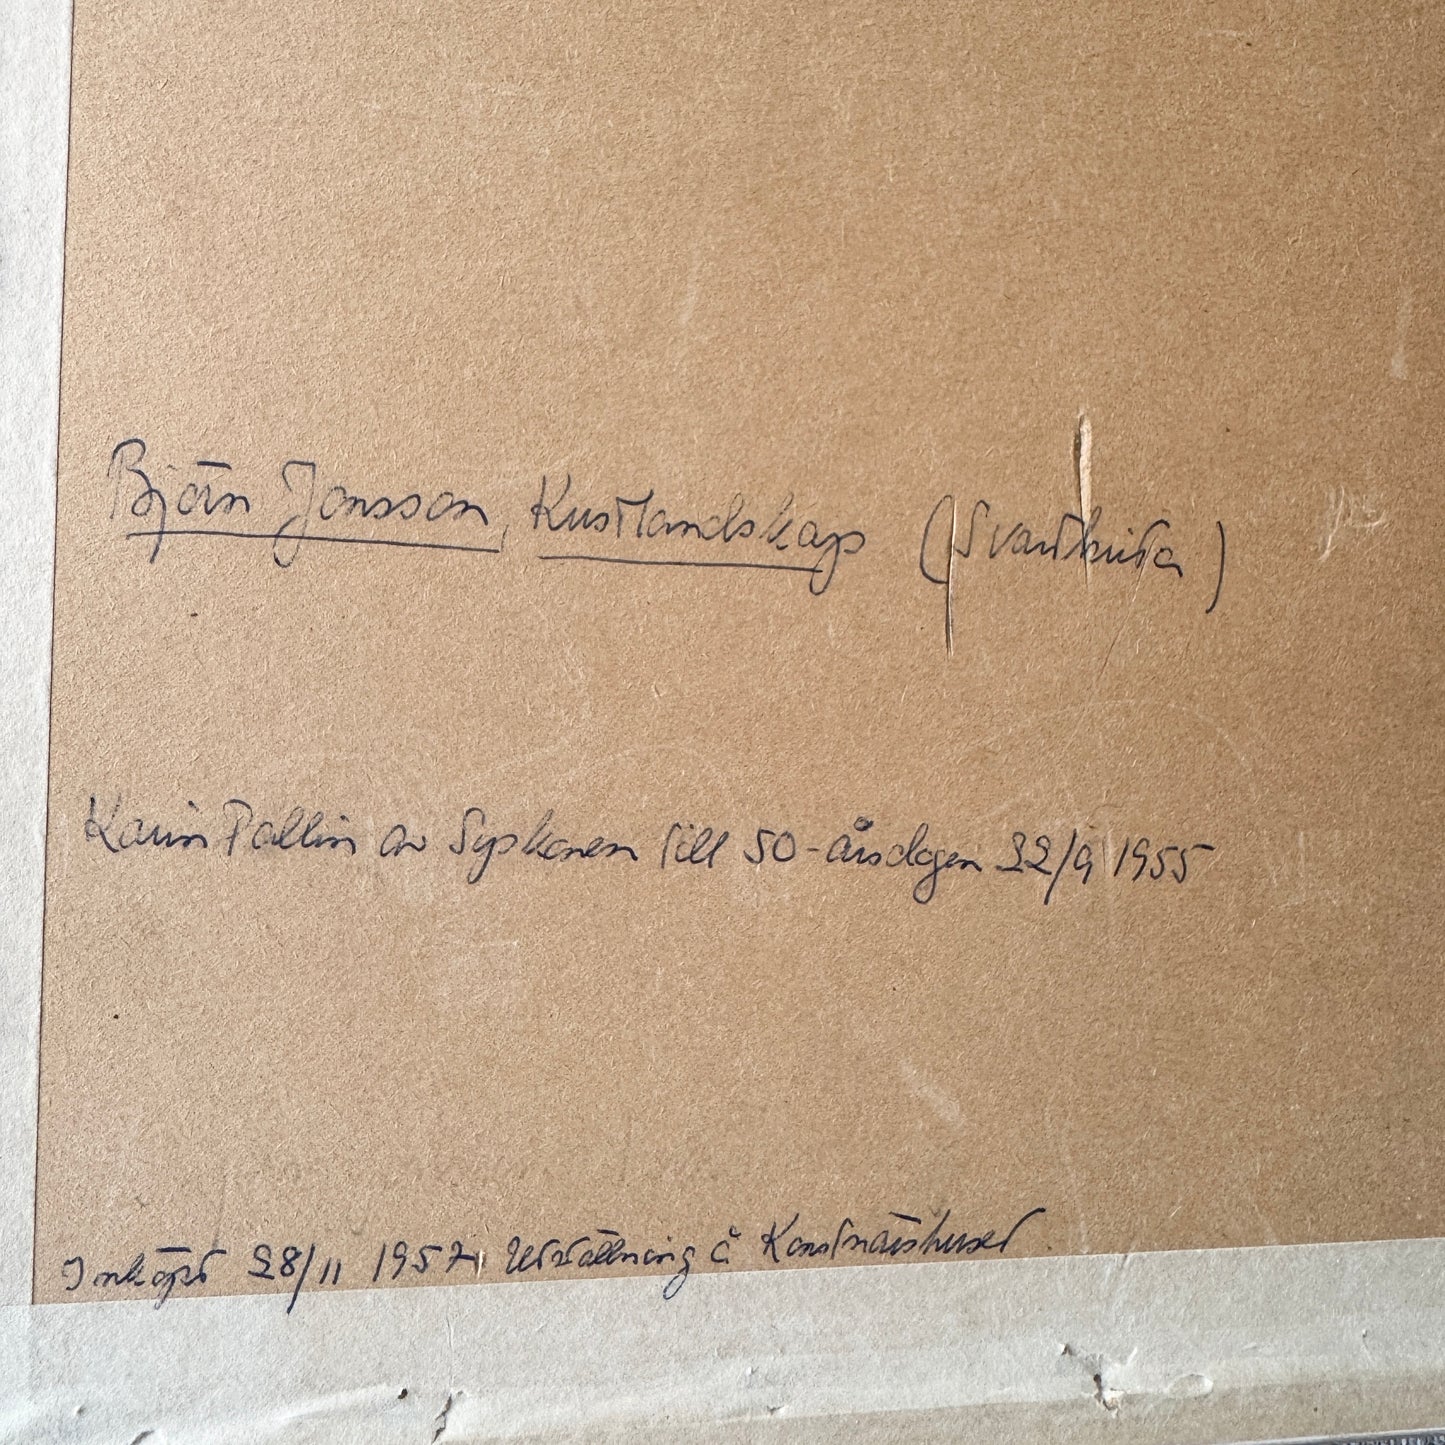 Björn Jonsson, Kustlandskap (Svartkrita)
Karin Pallin av Syskonen till 50-årsdagen 22/9 1955
Inköpt 28/11 1957, Utställning å Konstnärshuset